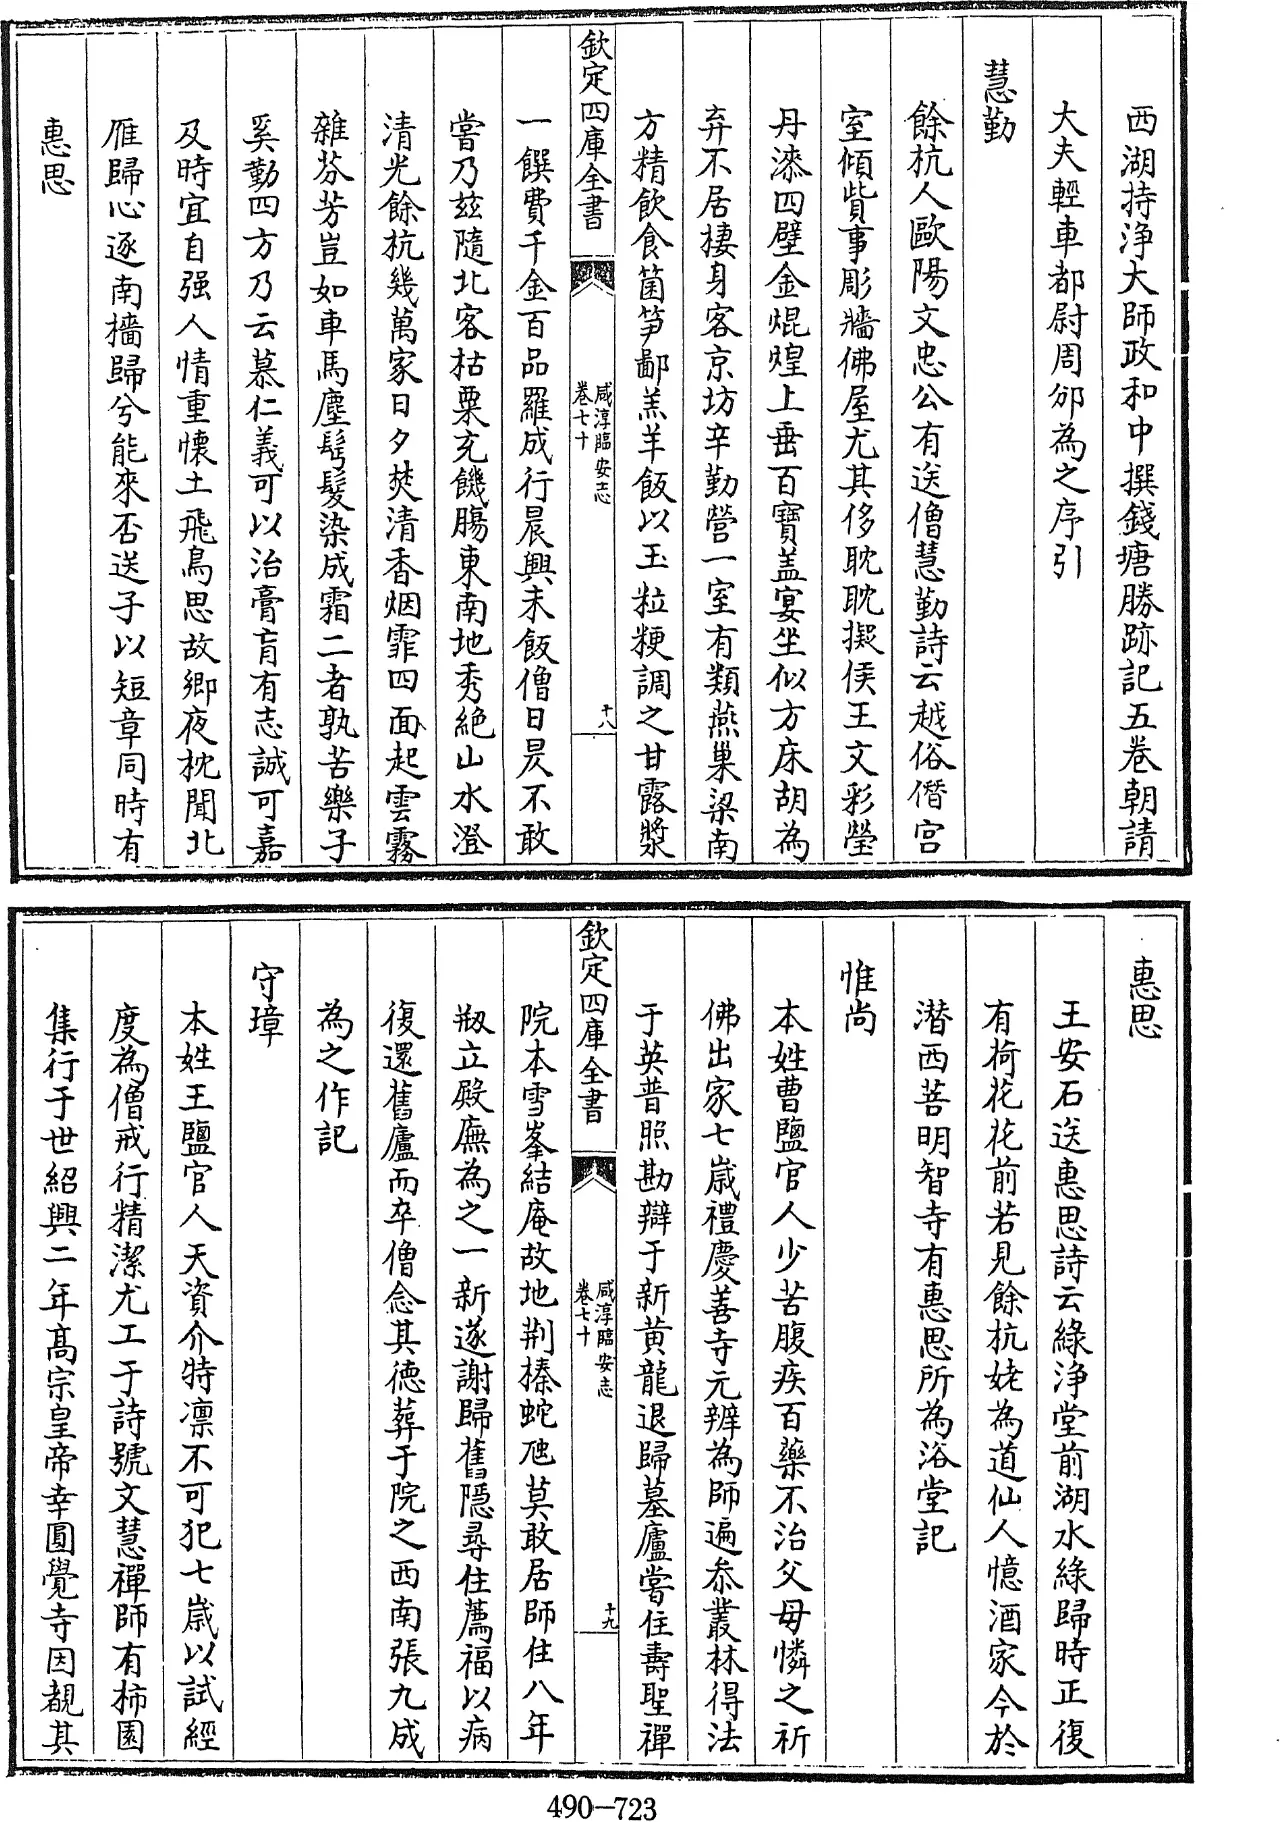 西湖持浄大師政和中撰錢塘勝跡記五卷朝請
大夫輕車都尉周邠為之序引
慧勤
餘杭人歐陽文忠公有送僧慧勤詩云越俗僭宫
室傾貲事彫牆佛屋尤其侈耽耽擬侯王文彩瑩
丹漆四壁金焜煌上垂百寶盖宴坐似方床胡為
弃不居棲身客京坊辛勤營一室有類燕巢梁南
方精飲食菌笋鄙羔羊飯以玉粒粳調之甘露漿
欽定四庫全書
咸淳臨安志
卷七十
十八
一饌費千金百品羅成行晨興未飯僧日昃不敢
嘗乃兹隨北客枯粟充饑腸東南地秀絶山水澄
清光餘杭幾萬家日夕焚清香烟霏四面起雲霧
雜芬芳豈如車馬塵髩髮染成霜二者孰苦樂子
奚勤四方乃云慕仁義可以治膏肓有志誠可嘉
及時宜自强人情重懷土飛鳥思故鄉夜枕聞北
雁歸心逐南檣歸兮能來否送子以短章同時有
惠思
惠思
王安石送惠思詩云緑浄堂前湖水緑歸時正復
有荷花花前若見餘杭姥為道仙人憶酒家今於
潜西菩明智寺有惠思所為浴堂記
惟尚
本姓曹鹽官人少苦腹疾百藥不治父母憐之祈
佛出家七歲禮慶善寺元辨為師遍叅叢林得法
于英普照勘辯于新黄龍退歸墓廬嘗住壽聖禪
欽定四庫全書
咸淳臨安志
卷七十
十九
院本雪峯結庵故地荆榛蛇虺莫敢居師住八年
剏立殿廡為之一新遂謝歸舊隠尋住薦福以病
復還舊廬而卒僧念其徳葬于院之西南張九成
為之作記
守璋
本姓王鹽官人天資介特凛不可犯七歲以試經
度為僧戒行精潔尤工于詩號文慧禪師有柿園
集行于世紹興二年髙宗皇帝幸圓覺寺因覩其
490-723